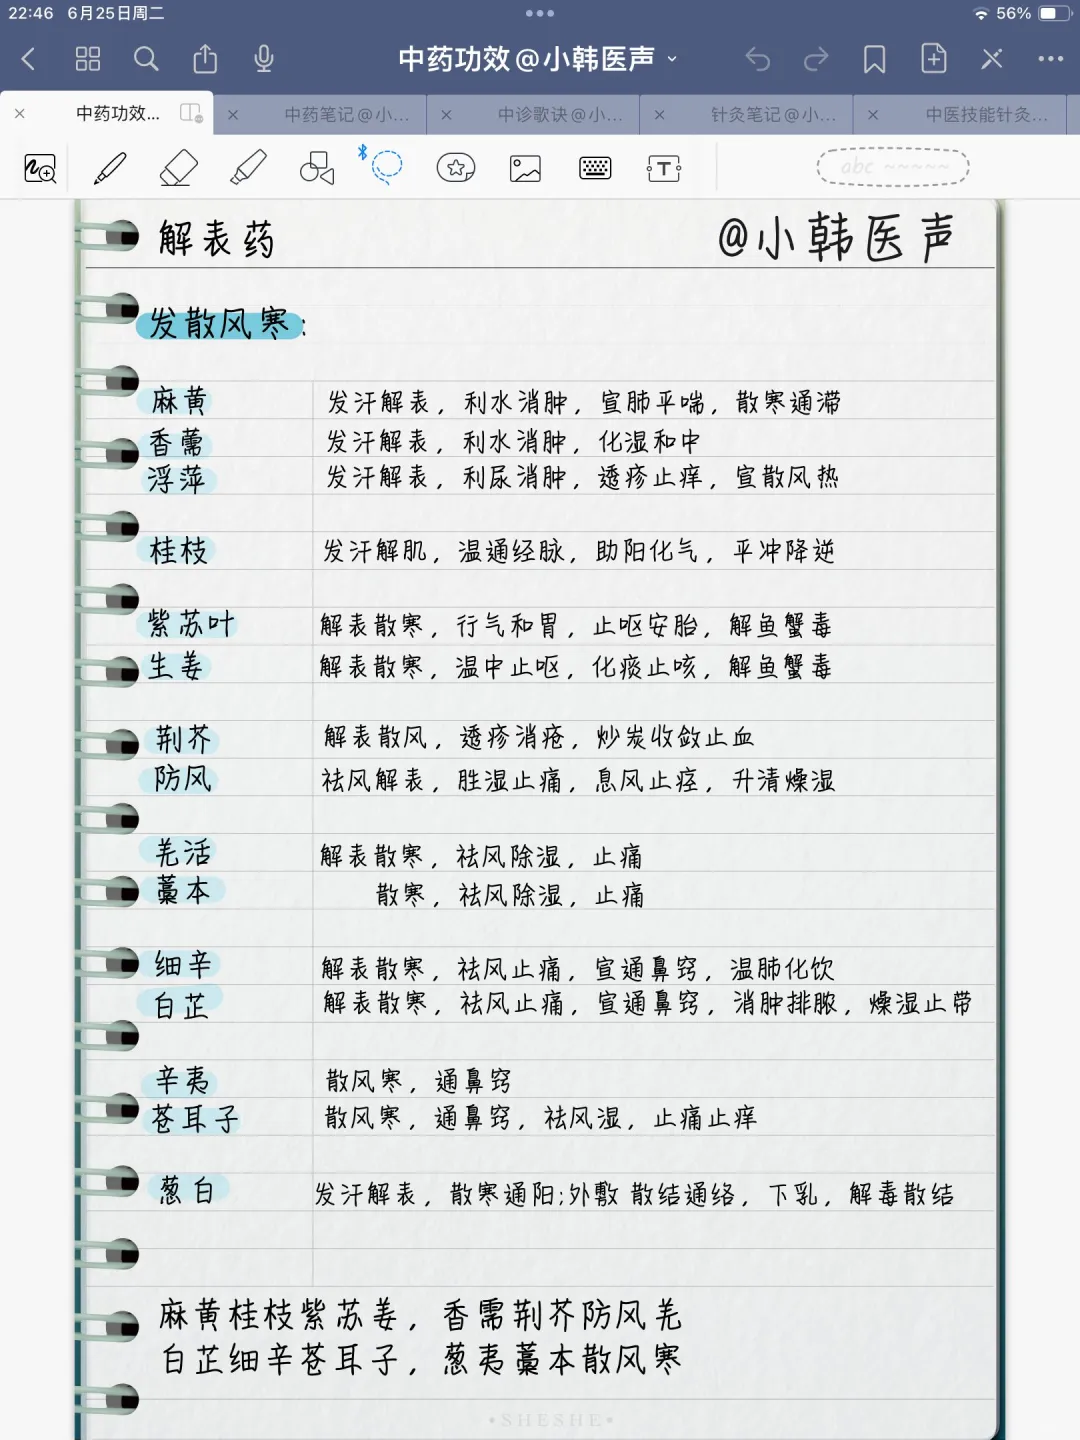 22:46 6月25日周二 56%
中药功效@小韩医声
中药功效... 中药笔记@小... 中诊歌诀@小... 针灸笔记@小... 中医技能针灸...
abc
解表药 @小韩医声
发散风寒:
麻黄 发汗解表，利水消肿，宣肺平喘，散寒通滞
香薷 发汗解表，利水消肿，化湿和中
浮萍 发汗解表，利尿消肿，透疹止痒，宣散风热
桂枝 发汗解肌，温通经脉，助阳化气，平冲降逆
紫苏叶 解表散寒，行气和胃，止呕安胎，解鱼蟹毒
生姜 解表散寒，温中止呕，化痰止咳，解鱼蟹毒
荆芥 解表散风，透疹消疮，炒炭收敛止血
防风 祛风解表，胜湿止痛，息风止痉，升清燥湿
羌活 解表散寒，祛风除湿，止痛
藁本 散寒，祛风除湿，止痛
细辛 解表散寒，祛风止痛，宣通鼻窍，温肺化饮
白芷 解表散寒，祛风止痛，宣通鼻窍，消肿排脓，燥湿止带
辛夷 散风寒，通鼻窍
苍耳子 散风寒，通鼻窍，祛风湿，止痛止痒
葱白 发汗解表，散寒通阳;外敷 散结通络，下乳，解毒散结
麻黄桂枝紫苏姜，香需荆芥防风羌
白芷细辛苍耳子，葱夷藁本散风寒
•SHESHE•